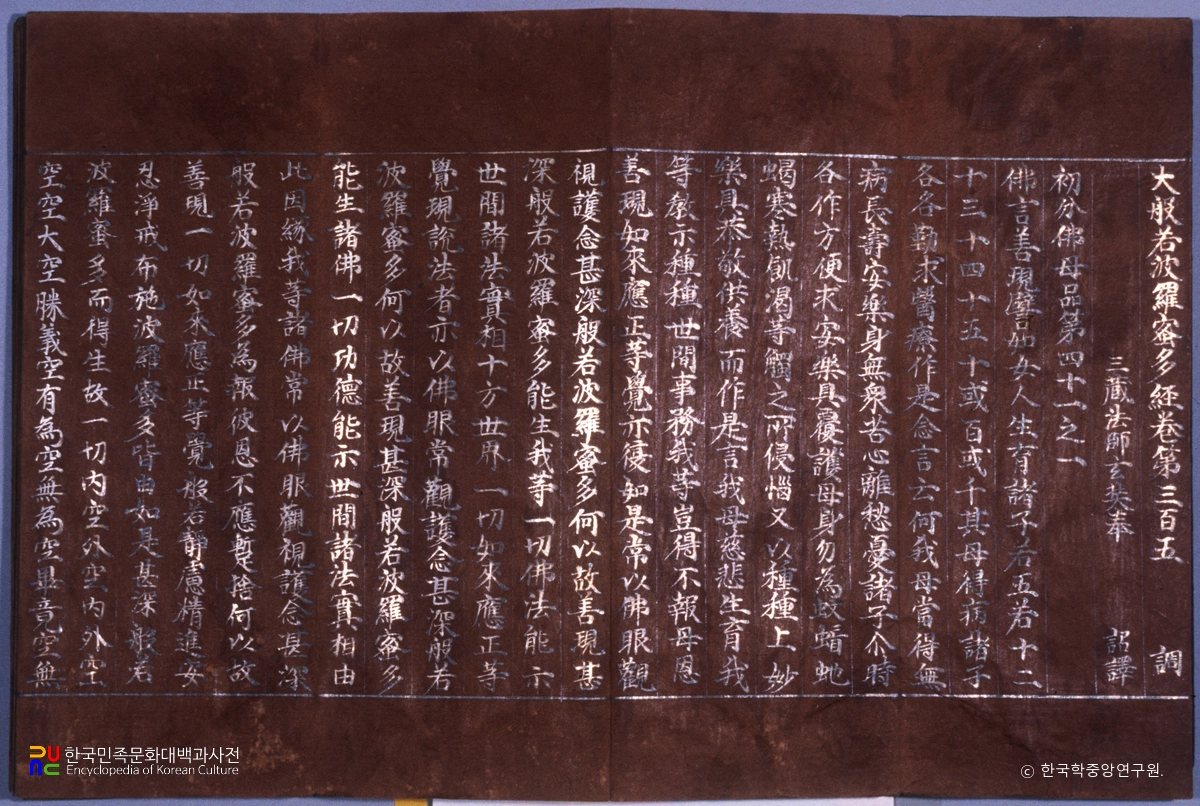 大般若波羅蜜多經卷第三百五 調
三藏法師玄奘奉 詔譯
初分佛母品第四十一之一
佛言善現譬如女人生育諸子若五若十二
十三十四十五十或百或千其母得病諸子
各各勤求醫療作是念言云何我母當得無
病長壽安樂身無衆苦心離愁憂諸子介時
各作方便求安樂具覆護母身勿為蚊蝱虵
蝎寒熱飢渴等觸之所侵惱又以種種上妙
樂具恭敬供養而作是言我母慈悲生育我
等教示種種世間事務我等豈得不報母恩
善現如來應正等覺亦復如是常以佛眼觀
視護念甚深般若波羅蜜多何以故善現甚
深般若波羅蜜多能生我等一切佛法能示
世間諸法實相十方世界一切如來應正等
覺現說法者亦以佛眼常觀護念甚深般若
波羅蜜多何以故善現甚深般若波羅蜜多
能生諸佛一切功德能示世間諸法實相由
此因緣我等諸佛常以佛眼觀視護念甚深
般若波羅蜜多為報彼恩不應暫捨何以故
善現一切如來應正等覺般若靜慮精進安
忍淨戒布施波羅蜜多皆由如是甚深般若
波羅蜜多而得生故一切內空外空內外空
空空大空勝義空有為空無為空畢竟空無
한국민족문화대백과사전
Encyclopedia of Korean Culture
© 한국학중앙연구원.